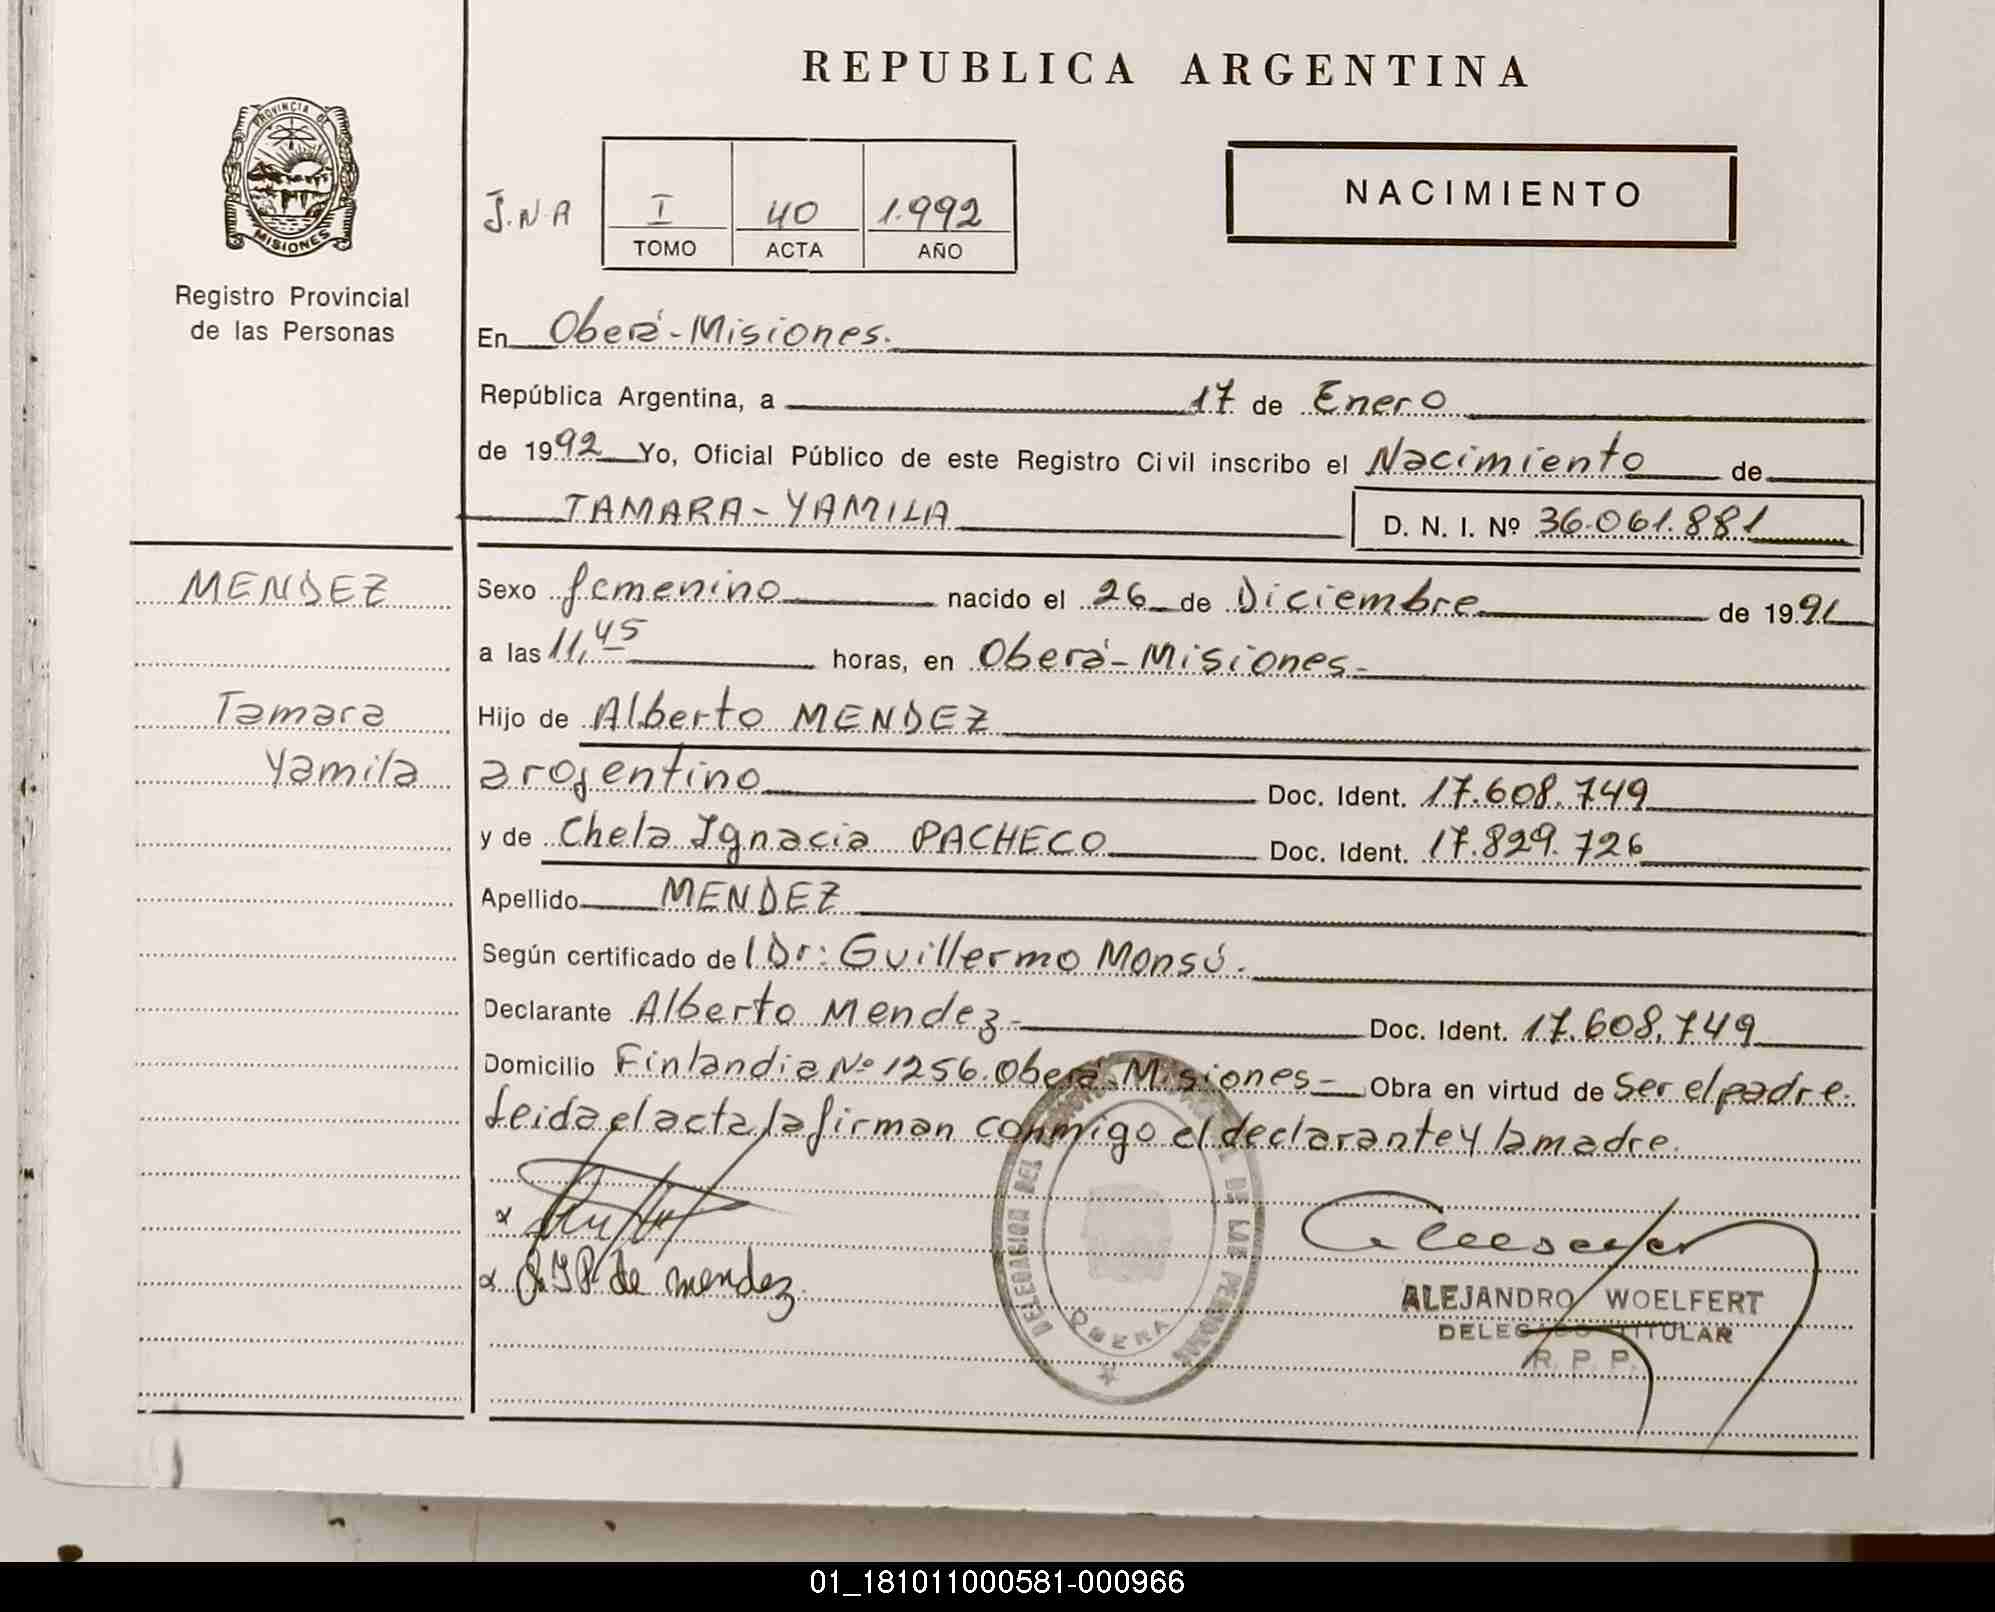 REPUBLICA ARGENTINA
PROVINCIA DE
MISIONES
Registro Provincial
de las Personas
J.N.A
I
40
1.992
TOMO
ACTA
AÑO
NACIMIENTO
En Oberá-Misiones.
República Argentina, a 17 de Enero
de 1992 Yo, Oficial Público de este Registro Civil inscribo el Nacimiento de
TAMARA-YAMILA
D. N. I. Nº 36.061.881
MENDEZ
Tamara
Yamila
Sexo femenino nacido el 26 de Diciembre de 1991
a las 11,45 horas, en Oberá-Misiones-
Hijo de Alberto MENDEZ
arogentino Doc. Ident. 17.608.749
y de Chela Ignacia PACHECO Doc. Ident. 17.829.726
Apellido MENDEZ
Según certificado del Dr: Guillermo Monsú.
Declarante Alberto Mendez- Doc. Ident. 17.608.749
Domicilio Finlandia Nº 1256. Oberá-Misiones- Obra en virtud de Ser el padre.
Leida el acta la firman conmigo el declarante y la madre.
de mendez
DELEGACION DEL DE LAS PERSONAS
OBERA
ALEJANDRO WOELFERT
DELEGADO TITULAR
R. P. P.
01_181011000581-000966